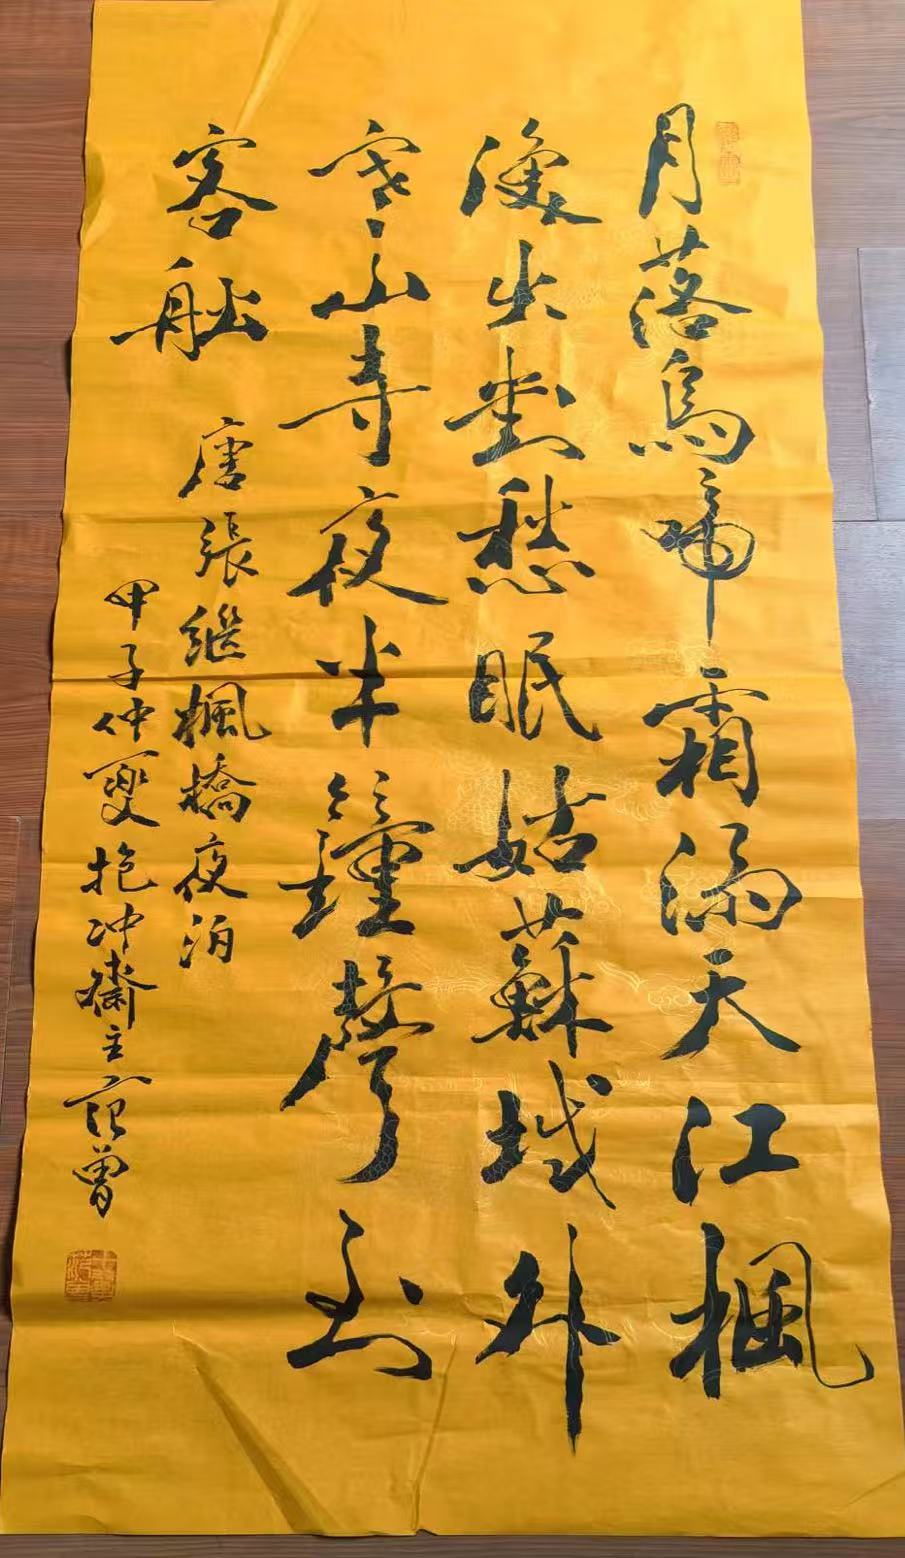 月落烏啼霜滿天江楓
漁火對愁眠姑蘇城外
寒山寺夜半鐘聲到
客船
唐張繼楓橋夜泊
甲子仲夏抱冲齋主范曾